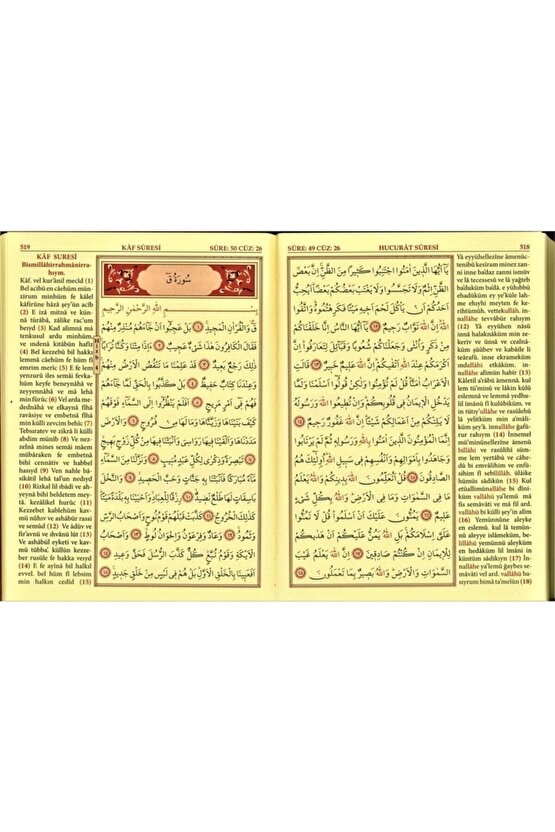 SÛRE: 49 CÜZ: 26
HUCURÂT SÛRESİ
518
يَا أَيُّهَا الَّذِينَ اٰمَنُوا اجْتَنِبُوا كَثِيرًا مِنَ الظَّنِّ اِنَّ بَعْضَ
الظَّنِّ اِثْمٌ وَلَا تَجَسَّسُوا وَلَا يَغْتَبْ بَعْضُكُمْ بَعْضًا اَيُحِبُّ
اَحَدُكُمْ اَنْ يَأْكُلَ لَحْمَ اَخِيهِ مَيْتًا فَكَرِهْتُمُوهُ وَاتَّقُوا
اللّٰهَ اِنَّ اللّٰهَ تَوَّابٌ رَحِيمٌ ﴿١٢﴾ يَا اَيُّهَا النَّاسُ اِنَّا خَلَقْنَاكُمْ
مِنْ ذَكَرٍ وَاُنْثٰى وَجَعَلْنَاكُمْ شُعُوبًا وَقَبَائِلَ لِتَعَارَفُوا اِنَّ
اَكْرَمَكُمْ عِنْدَ اللّٰهِ اَتْقٰيكُمْ اِنَّ اللّٰهَ عَلِيمٌ خَبِيرٌ ﴿١٣﴾ قَالَتِ
الْاَعْرَابُ اٰمَنَّا قُلْ لَمْ تُؤْمِنُوا وَلٰكِنْ قُولُوا اَسْلَمْنَا وَلَمَّا
يَدْخُلِ الْاِيمَانُ فِي قُلُوبِكُمْ وَاِنْ تُطِيعُوا اللّٰهَ وَرَسُولَهُ لَا
يَلِتْكُمْ مِنْ اَعْمَالِكُمْ شَيْئًا اِنَّ اللّٰهَ غَفُورٌ رَحِيمٌ ﴿١٤﴾
اِنَّمَا الْمُؤْمِنُونَ الَّذِينَ اٰمَنُوا بِاللّٰهِ وَرَسُولِهِ ثُمَّ لَمْ يَرْتَابُوا
وَجَاهَدُوا بِاَمْوَالِهِمْ وَاَنْفُسِهِمْ فِي سَبِيلِ اللّٰهِ اُولٰئِكَ هُمُ
الصَّادِقُونَ ﴿١٥﴾ قُلْ اَتُعَلِّمُونَ اللّٰهَ بِدِينِكُمْ وَاللّٰهُ يَعْلَمُ
مَا فِي السَّمٰوَاتِ وَمَا فِي الْاَرْضِ وَاللّٰهُ بِكُلِّ شَيْءٍ
عَلِيمٌ ﴿١٦﴾ يَمُنُّونَ عَلَيْكَ اَنْ اَسْلَمُوا قُلْ لَا تَمُنُّوا
عَلَيَّ اِسْلَامَكُمْ بَلِ اللّٰهُ يَمُنُّ عَلَيْكُمْ اَنْ هَدٰيكُمْ
لِلْاِيمَانِ اِنْ كُنْتُمْ صَادِقِينَ ﴿١٧﴾ اِنَّ اللّٰهَ يَعْلَمُ غَيْبَ
السَّمٰوَاتِ وَالْاَرْضِ وَاللّٰهُ بَصِيرٌ بِمَا تَعْمَلُونَ ﴿١٨﴾
Yâ eyyühellezîne âmenüc-
tenibû kesîram minez zan-
ni inne ba'daz zanni ismüv
ve lâ tecessesû ve lâ yağteb
ba'duküm ba'dâ. e yühıbbü
ehadüküm ey ye'küle lah-
me ehıyhi meyten fe ke-
rihtümûh. vettekullâh. in-
nallâhe tevvâbür rahıym
(12) Yâ eyyühen nâsü
innâ halaknâküm min ze-
keriv ve ünsâ ve cealnâ-
küm şüûbev ve kabâile li
teârafû. inne ekrameküm
ındallâhi etkâküm. in-
nallâhe alîmün habîr (13)
Kâletil a'râbü âmennâ. kul
lem tü'minû ve lâkin kûlû
eslemnâ ve lemmâ yedhu-
lil îmânü fî kulûbiküm. ve
in tütıy'ullâhe ve rasûlehû
lâ yelitküm min a'mâli-
küm şey'â. innallâhe ğafû-
rur rahıym (14) İnnemel
mü'minûnellezîne âmenû
billâhi ve rasûlihî süm-
me lem yertâbû ve câhe-
dû bi emvâlihim ve enfü-
sihim fî sebîlillâh. ülâike
hümüs sâdikûn (15) Kul
etüallimûnallâhe bi dîni-
küm vallâhü ya'lemü mâ
fis semâvâti ve mâ fil ard.
vallâhü bi külli şey'in alîm
(16) Yemünnûne aleyke
en eslemû. kul lâ temün-
nû aleyye islâmeküm, be-
lillâhü yemünnü aleyküm
en hedâküm lil îmâni in
küntüm sâdikıyn (17) İn-
nallâhe ya'lemü ğaybes se-
mâvâti vel ard. vallâhü ba-
sıyrum bimâ ta'melûn (18)
519
KÂF SÛRESİ
SÛRE: 50 CÜZ: 26
سُورَةُ قٓ
بِسْمِ اللّٰهِ الرَّحْمٰنِ الرَّحِيمِ
قٓ وَالْقُرْاٰنِ الْمَجِيدِ ﴿١﴾ بَلْ عَجِبُوا اَنْ جَاءَهُمْ مُنْذِرٌ مِنْهُمْ
فَقَالَ الْكَافِرُونَ هٰذَا شَيْءٌ عَجِيبٌ ﴿٢﴾ ءَاِذَا مِتْنَا وَكُنَّا تُرَابًا
ذٰلِكَ رَجْعٌ بَعِيدٌ ﴿٣﴾ قَدْ عَلِمْنَا مَا تَنْقُصُ الْاَرْضُ مِنْهُمْ
وَعِنْدَنَا كِتَابٌ حَفِيظٌ ﴿٤﴾ بَلْ كَذَّبُوا بِالْحَقِّ لَمَّا جَاءَهُمْ
فَهُمْ فِي اَمْرٍ مَرِيجٍ ﴿٥﴾ اَفَلَمْ يَنْظُرُوا اِلَى السَّمَاءِ فَوْقَهُمْ
كَيْفَ بَنَيْنَاهَا وَزَيَّنَّاهَا وَمَا لَهَا مِنْ فُرُوجٍ ﴿٦﴾ وَالْاَرْضَ
مَدَدْنَاهَا وَاَلْقَيْنَا فِيهَا رَوَاسِيَ وَاَنْبَتْنَا فِيهَا مِنْ كُلِّ زَوْجٍ بَهِيجٍ
﴿٧﴾ تَبْصِرَةً وَذِكْرٰى لِكُلِّ عَبْدٍ مُنِيبٍ ﴿٨﴾ وَنَزَّلْنَا مِنَ السَّمَاءِ
مَاءً مُبَارَكًا فَاَنْبَتْنَا بِهِ جَنَّاتٍ وَحَبَّ الْحَصِيدِ ﴿٩﴾ وَالنَّخْلَ
بَاسِقَاتٍ لَهَا طَلْعٌ نَضِيدٌ ﴿١٠﴾ رِزْقًا لِلْعِبَادِ وَاَحْيَيْنَا بِهِ بَلْدَةً مَيْتًا
كَذٰلِكَ الْخُرُوجُ ﴿١١﴾ كَذَّبَتْ قَبْلَهُمْ قَوْمُ نُوحٍ وَاَصْحَابُ الرَّسِّ
وَثَمُودُ ﴿١٢﴾ وَعَادٌ وَفِرْعَوْنُ وَاِخْوَانُ لُوطٍ ﴿١٣﴾ وَاَصْحَابُ
الْاَيْكَةِ وَقَوْمُ تُبَّعٍ كُلٌّ كَذَّبَ الرُّسُلَ فَحَقَّ وَعِيدِ ﴿١٤﴾
اَفَعَيِينَا بِالْخَلْقِ الْاَوَّلِ بَلْ هُمْ فِي لَبْسٍ مِنْ خَلْقٍ جَدِيدٍ ﴿١٥﴾
KÂF SÛRESİ
Bismillâhirrahmânirra-
hıym.
Kâf. vel kur'ânil mecîd (1)
Bel acibû en câehüm mün-
zirum minhüm fe kâlel
kâfirûne hâzâ şey'ün acîb
(2) E izâ mitnâ ve kün-
nâ türâbâ, zâlike rac'um
beıyd (3) Kad alimnâ mâ
tenkusul ardu minhüm,
ve ındenâ kitâbün hafıyz
(4) Bel kezzebû bil hakkı
lemmâ câehüm fe hüm fî
emrim merîc (5) E fe lem
yenzurû iles semâi fevka-
hüm keyfe beneynâhâ ve
zeyyennâhâ ve mâ lehâ
min fürûc (6) Vel arda me-
dednâhâ ve elkaynâ fîhâ
ravâsiye ve enbetnâ fîhâ
min külli zevcim behîc (7)
Tebsıratev ve zikrâ li külli
abdim münîb (8) Ve nez-
zelnâ mines semâi mâem
mübâraken fe enbetnâ
bihî cennâtiv ve habbel
hasıyd (9) Ven nahle bâ-
sikâtil lehâ tal'un nedıyd
(10) Rizkal lil ıbâdi ve ah-
yeynâ bihî beldetem mey-
tâ. kezâlikel hurûc (11)
Kezzebet kablehüm kav-
mü nûhıv ve ashâbür rassi
ve semûd (12) Ve âdüv ve
fir'avnü ve ihvânü lût (13)
Ve ashâbül eyketi ve kav-
mü tübba'. küllün kezze-
ber rusüle fe hakka veıyd
(14) E fe ayînâ bil halkıl
evvel. bel hüm fî lebsim
min halkın cedîd (15)